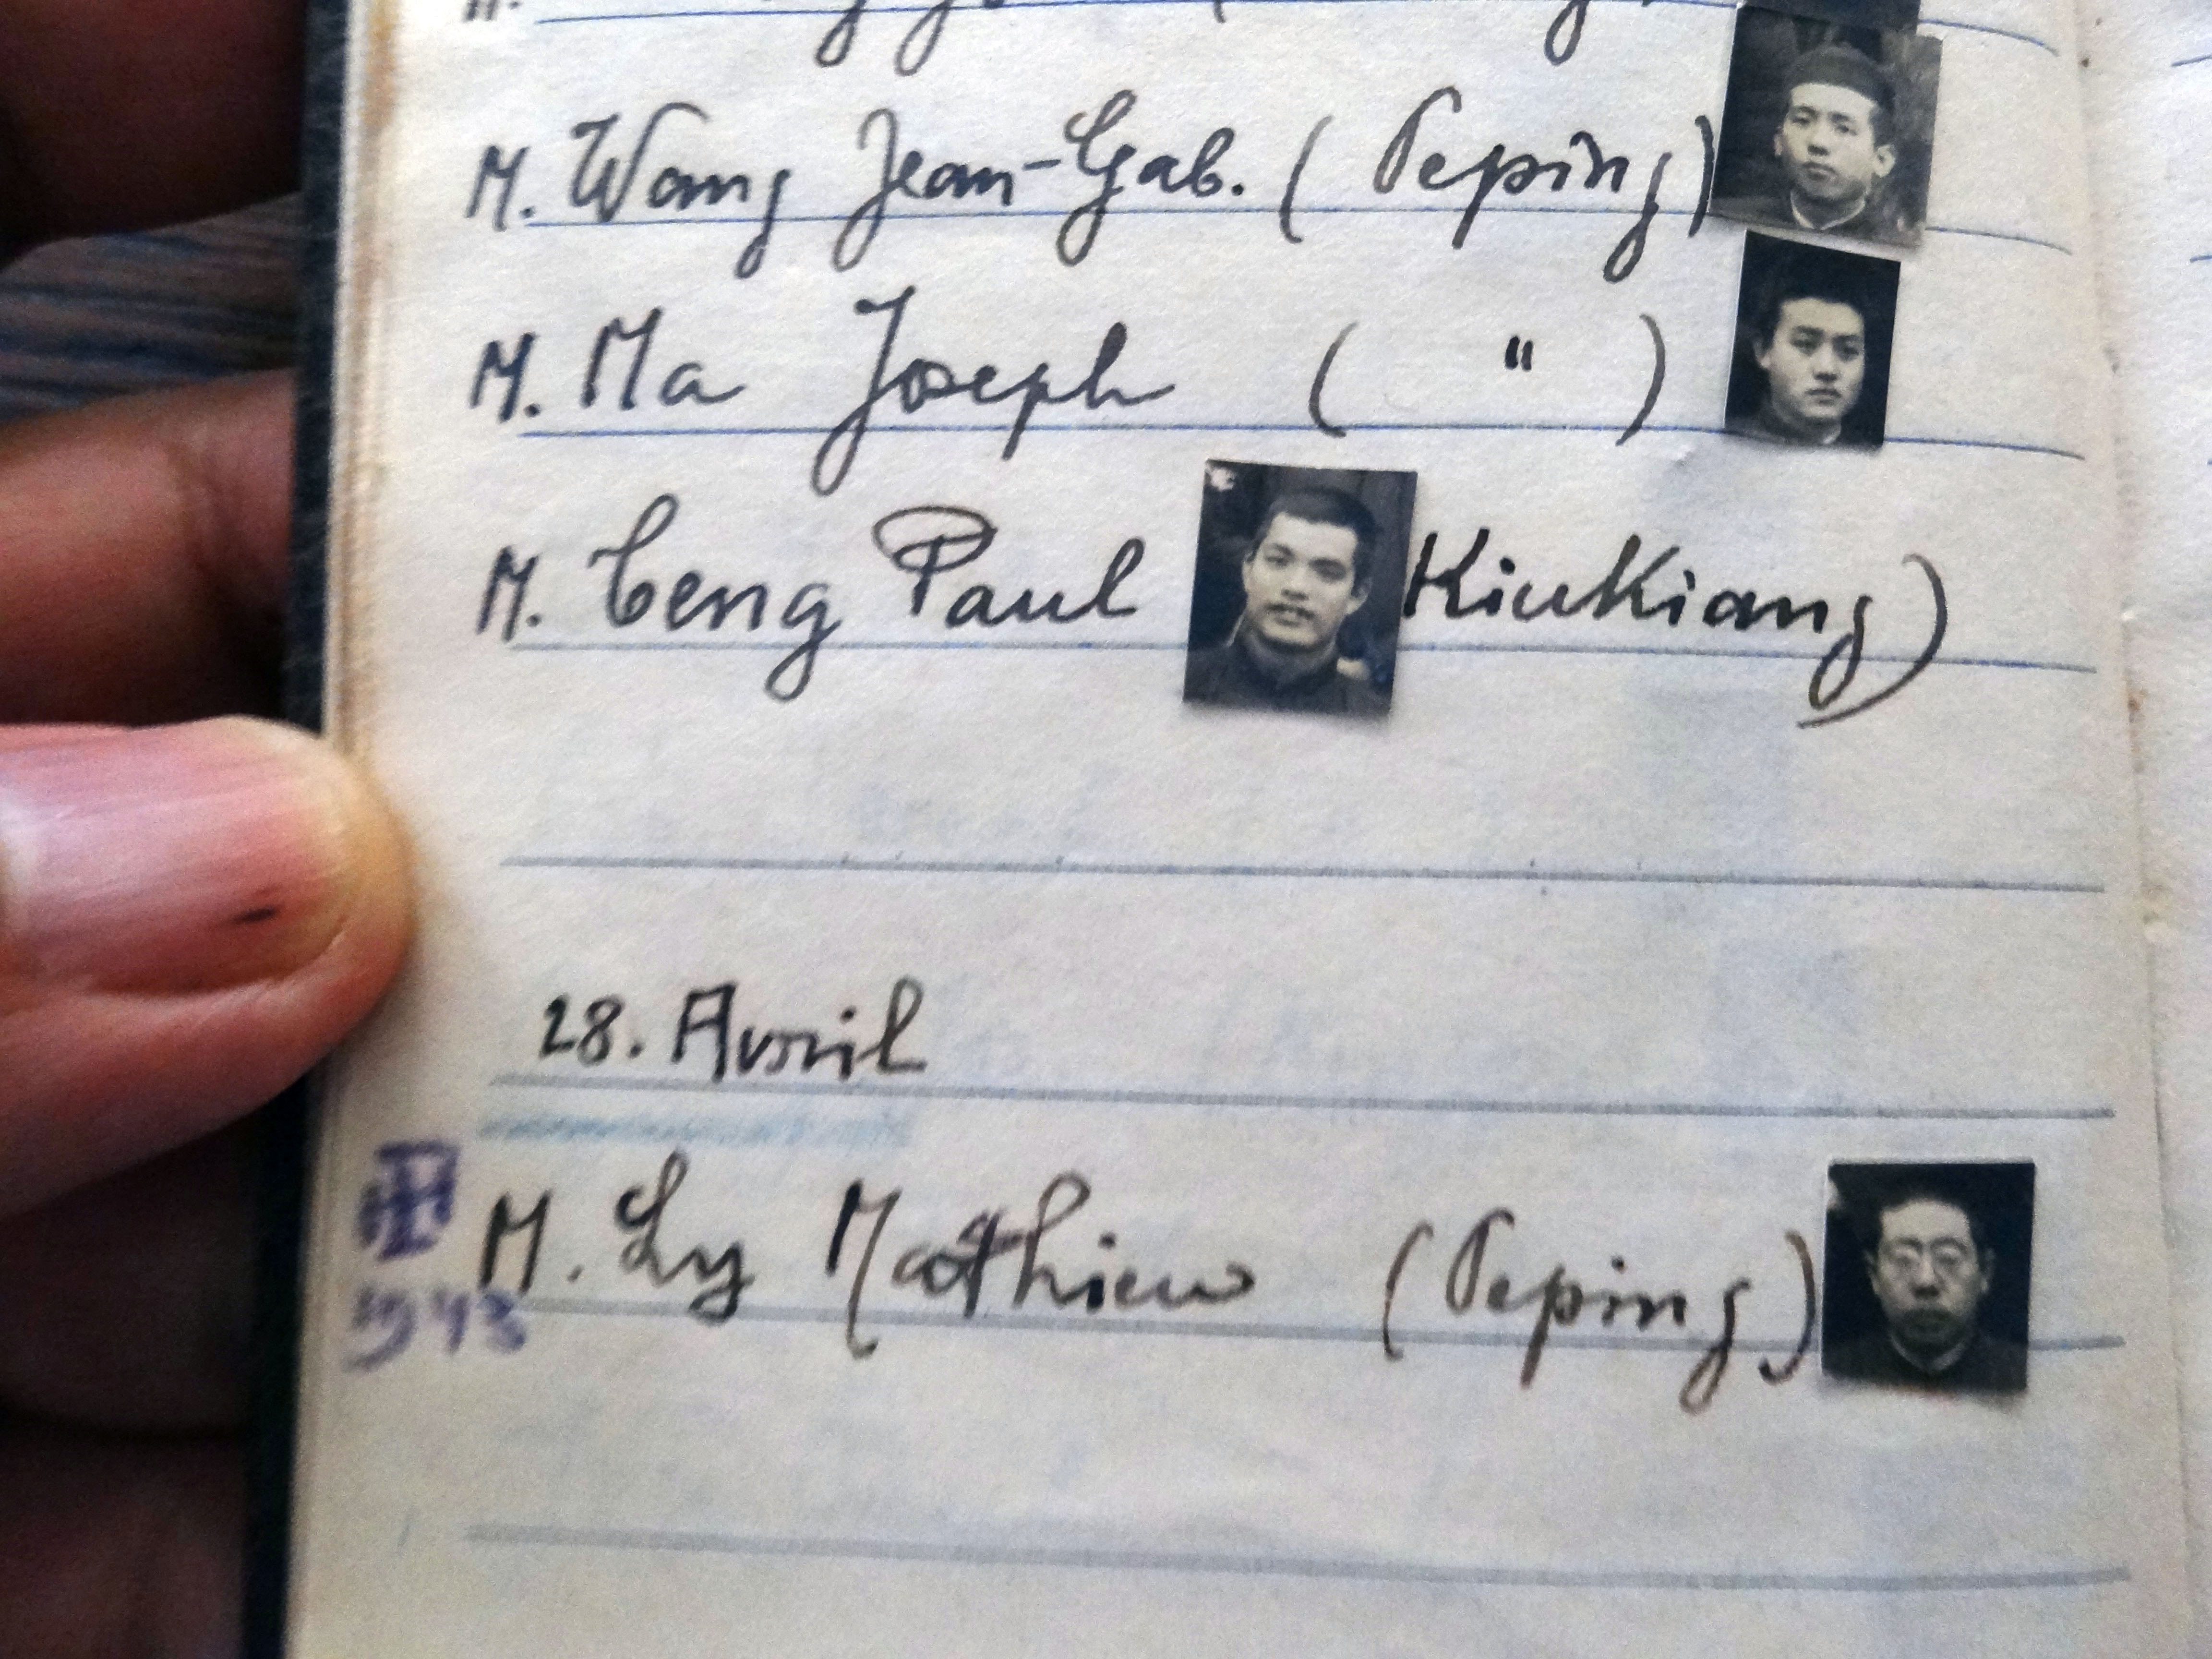 M. Wang Jean-Gab. (Peping)
M. Ma Joseph ( " )
M. Ceng Paul Kiukiang)
28. Avril
M. Ly Mathieu (Peping)
1943